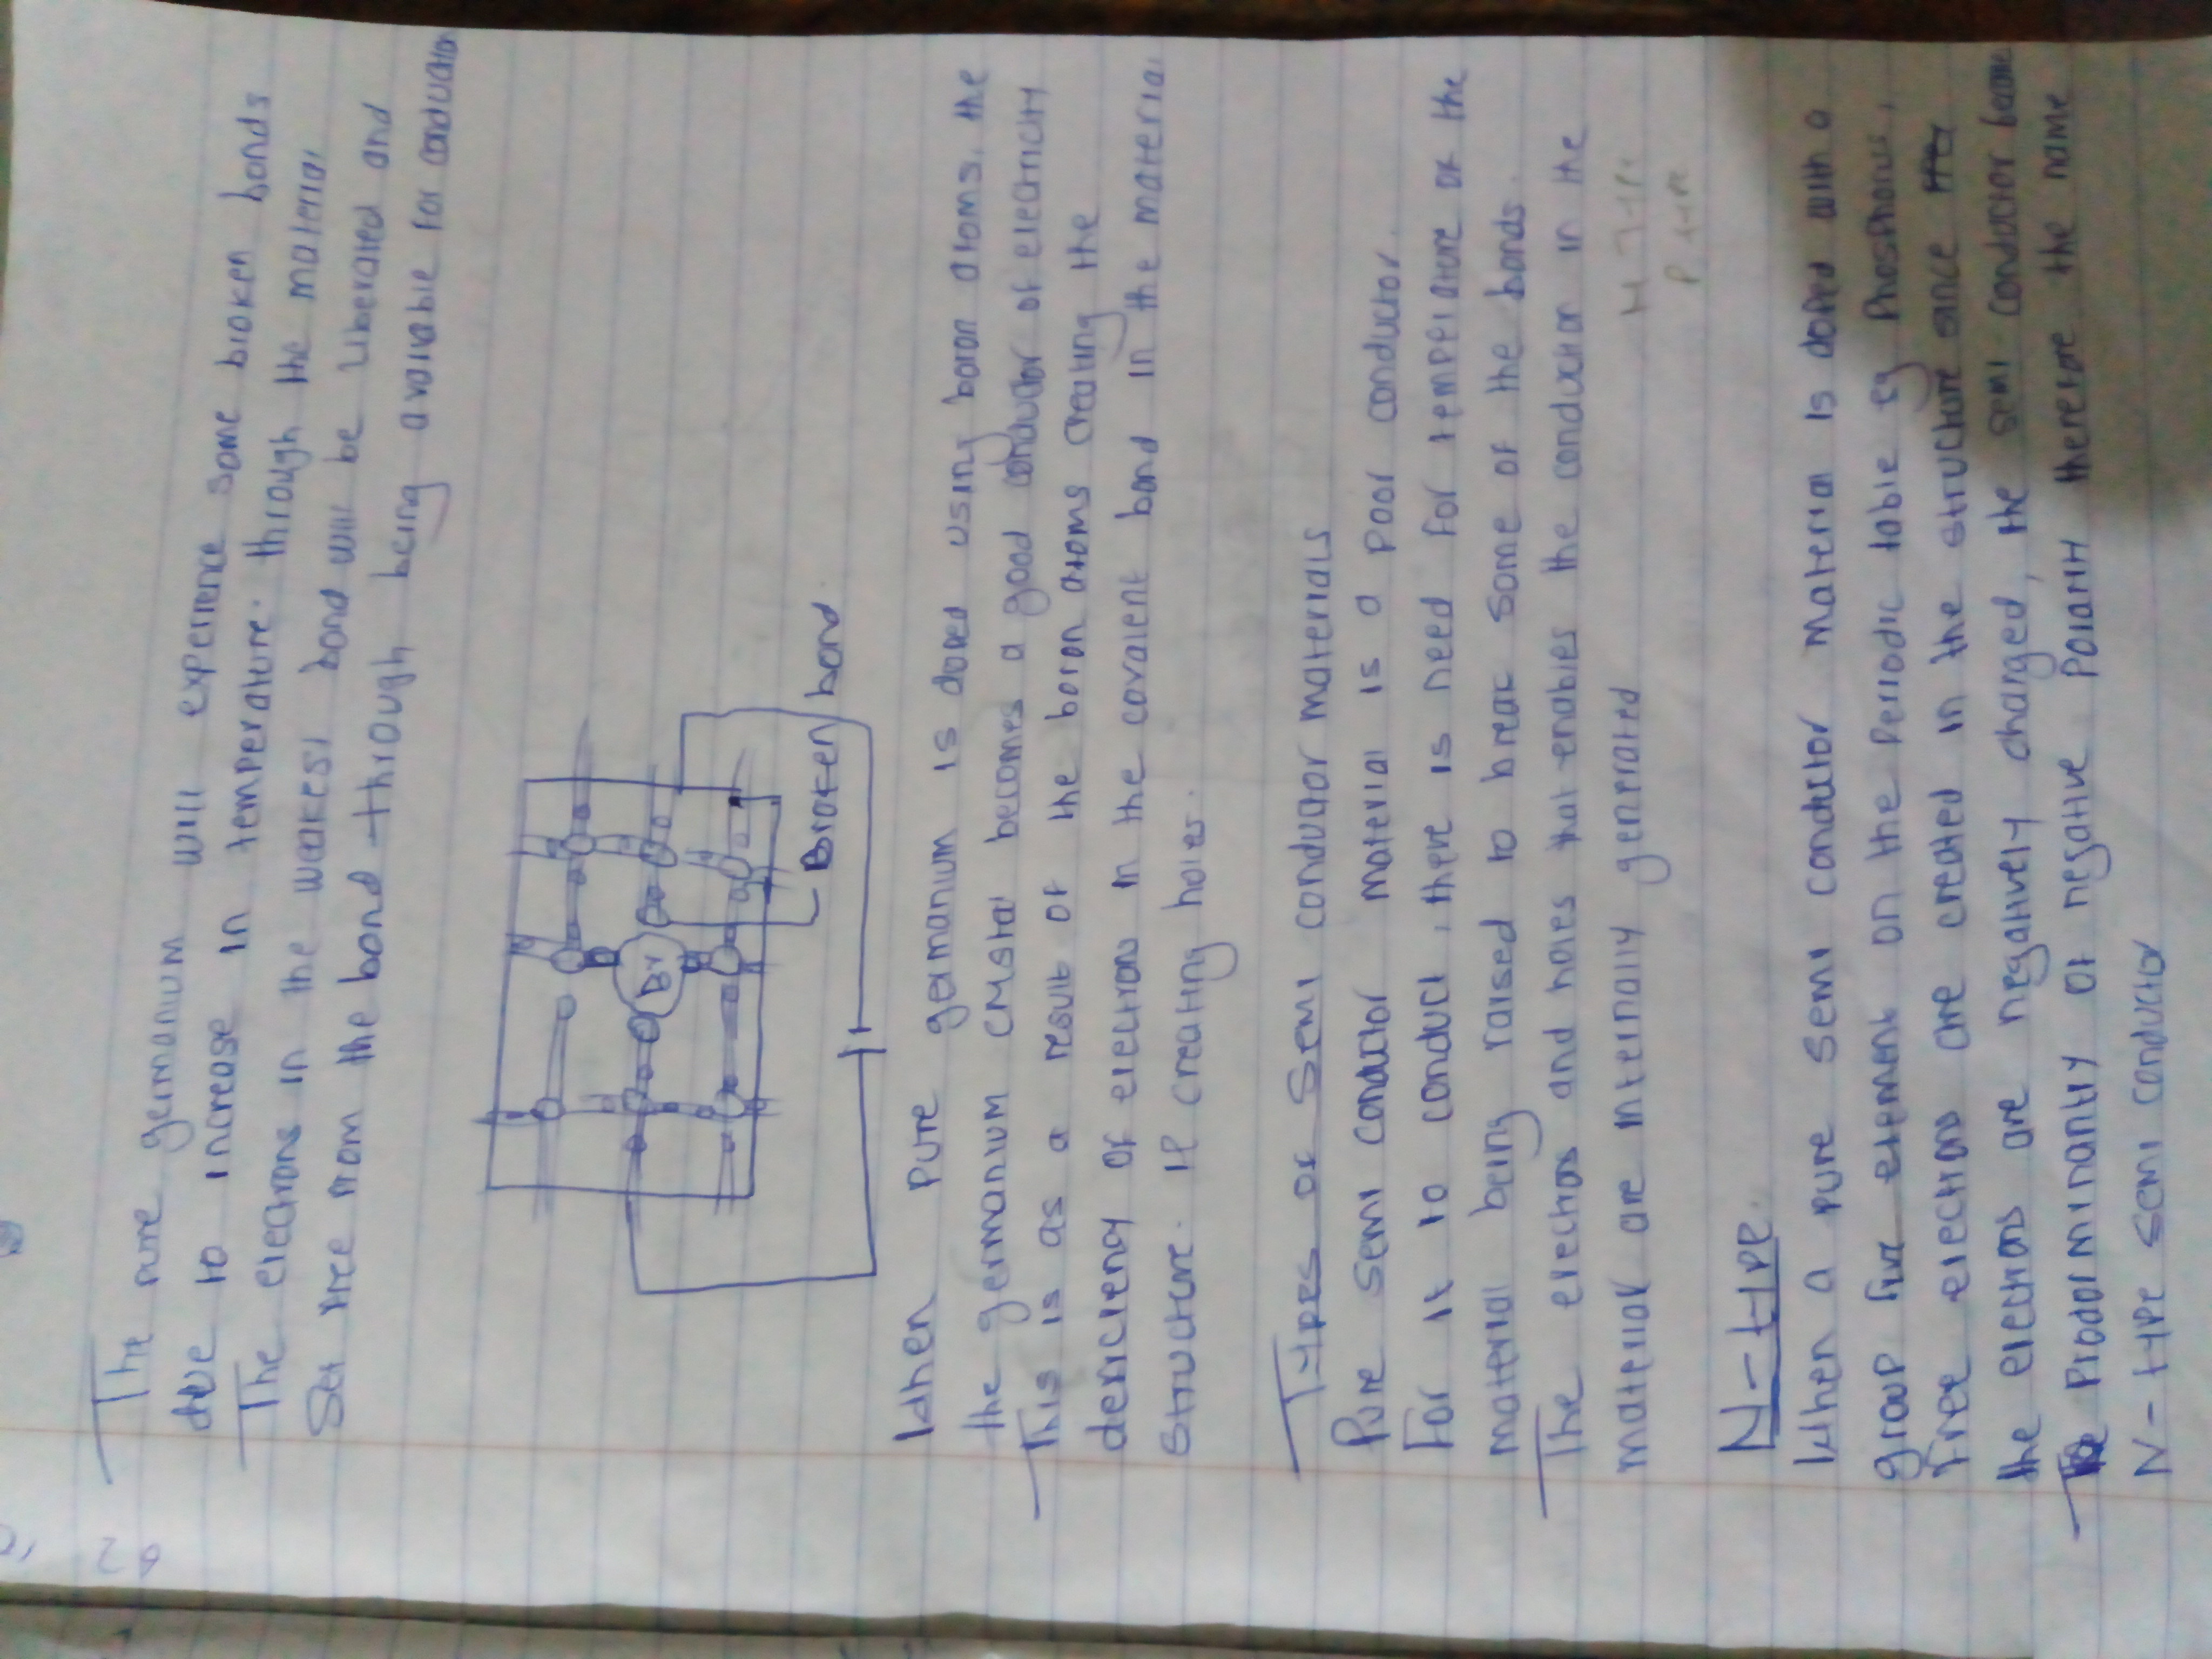 The pure germanium will experience some broken bonds
due to increase in temperature. through the material
The electrons in the weakest bond will be liberated and
Set free from the bond through being available for conduction
Br
Broken bond
When pure germanium is doped using boron atoms. the
the germanium crystal becomes a good conductor of electricity
This is as a result of the boron atoms creating the
deficiency of electrons in the covalent bond in the material
structure. ie creating holes.
Types of semi conductor materials
Pure semi conductor material is a poor conductor.
For it to conduct, there is need for temperature of the
material being raised to break some of the bonds.
The electrons and holes that enables the conduction in the
material are internally generated
N Type
P type
N-type.
When a pure semi conductor material is doped with a
group five element on the periodic table eg Phosphorus,
Free electrons are created in the structure since
the electrons are negatively charged, the semi conductor become
Prodorminantly of negative polarity therefore the name
N-type semi conductor